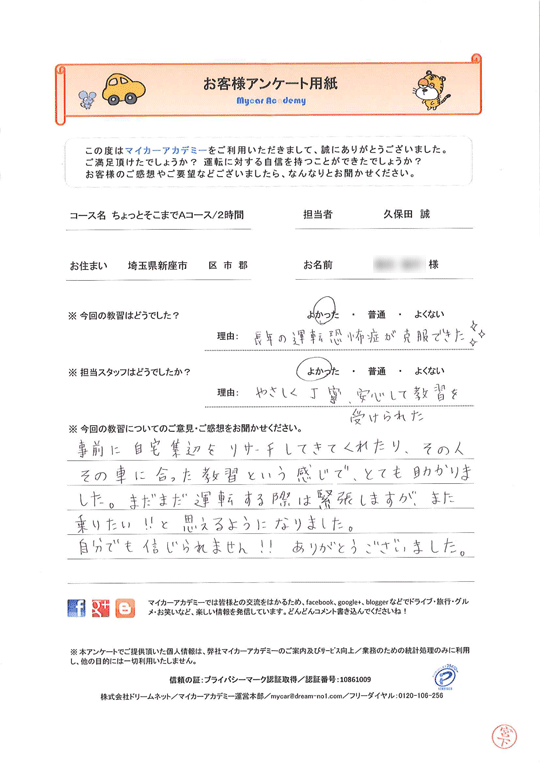 お客様アンケート用紙
Mycar Academy
この度はマイカーアカデミーをご利用いただきまして、誠にありがとうございました。
ご満足頂けたでしょうか？ 運転に対する自信を持つことができたでしょうか？
お客様のご感想やご要望などございましたら、なんなりとお聞かせください。
コース名 ちょっとそこまでAコース/2時間 担当者 久保田 誠
お住まい 埼玉県新座市 区 市 郡 お名前 様
※ 今回の教習はどうでした？ よかった ・ 普通 ・ よくない
理由: 長年の運転恐怖症が克服できた
※ 担当スタッフはどうでしたか？ よかった ・ 普通 ・ よくない
理由: やさしく丁寧、安心して教習を
受けられた
※ 今回の教習についてのご意見・ご感想をお聞かせください。
事前に自宅集辺をリサーチしてきてくれたり、その人
その車に合った教習という感じで、とても助かりま
した。まだまだ運転する際は緊張しますが、また
乗りたい!!と思えるようになりました。
自分でも信じられません!! ありがとうございました。
マイカーアカデミーでは皆様との交流をはかるため、facebook、google+、bloggerなどでドライブ・旅行・グル
メ・お笑いなど、楽しい情報を発信しています。どんどんコメント書き込んでくださいね！
※ 本アンケートでご提供頂いた個人情報は、弊社マイカーアカデミーのご案内及びサービス向上／業務のための統計処理のみに利用
し、他の目的には一切利用いたしません。
信頼の証:プライバシーマーク認証取得／認証番号:10861009
株式会社ドリームネット／マイカーアカデミー運営本部／mycar@dream-no1.com／フリーダイヤル:0120-106-256
宮下